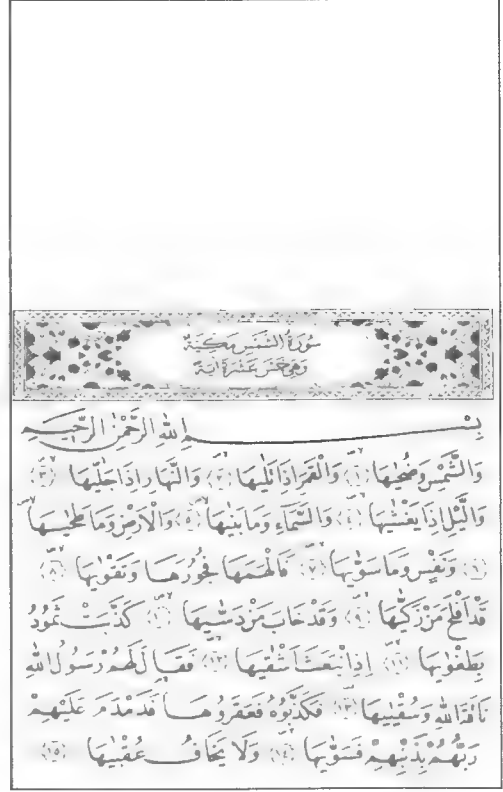 سُورَةُ الشَّمْسِ مَكِّيَّةٌ
وَهِيَ خَمْسَ عَشْرَةَ اٰيَةً
بِسْمِ اللّٰهِ الرَّحْمٰنِ الرَّحِيمِ
وَالشَّمْسِ وَضُحٰيهَا ﴿١﴾ وَالْقَمَرِ اِذَا تَلٰيهَا ﴿٢﴾ وَالنَّهَارِ اِذَا جَلّٰيهَا ﴿٣﴾
وَالَّيْلِ اِذَا يَغْشٰيهَا ﴿٤﴾ وَالسَّمَاءِ وَمَا بَنٰيهَا ﴿٥﴾ وَالْاَرْضِ وَمَا طَحٰيهَا
﴿٦﴾ وَنَفْسٍ وَمَا سَوّٰيهَا ﴿٧﴾ فَاَلْهَمَهَا فُجُورَهَا وَتَقْوٰيهَا ﴿٨﴾
قَدْ اَفْلَحَ مَنْ زَكّٰيهَا ﴿٩﴾ وَقَدْ خَابَ مَنْ دَسّٰيهَا ﴿١٠﴾ كَذَّبَتْ ثَمُودُ
بِطَغْوٰيهَا ﴿١١﴾ اِذِ انْبَعَثَ اَشْقٰيهَا ﴿١٢﴾ فَقَالَ لَهُمْ رَسُولُ اللّٰهِ
نَاقَةَ اللّٰهِ وَسُقْيٰيهَا ﴿١٣﴾ فَكَذَّبُوهُ فَعَقَرُوهَا فَدَمْدَمَ عَلَيْهِمْ
رَبُّهُمْ بِذَنْبِهِمْ فَسَوّٰيهَا ﴿١٤﴾ وَلَا يَخَافُ عُقْبٰيهَا ﴿١٥﴾